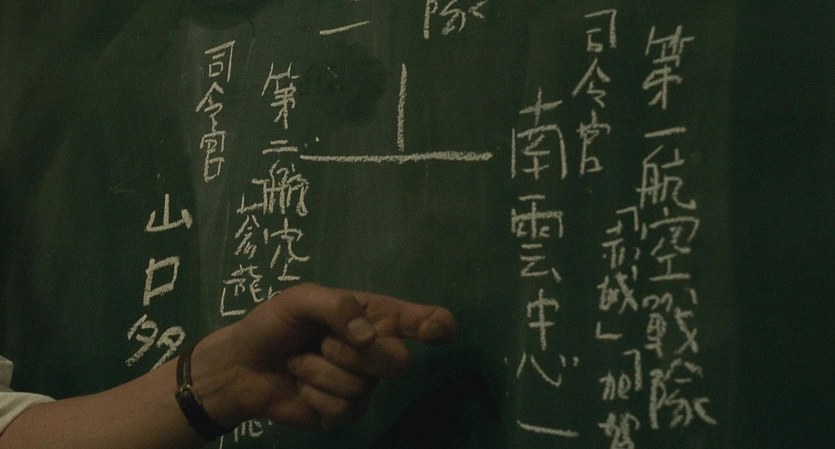 隊
第一航空戰隊
「赤城」「加賀
司令官
南雲忠一
第二航空
「蒼龍」
司令官
山口多